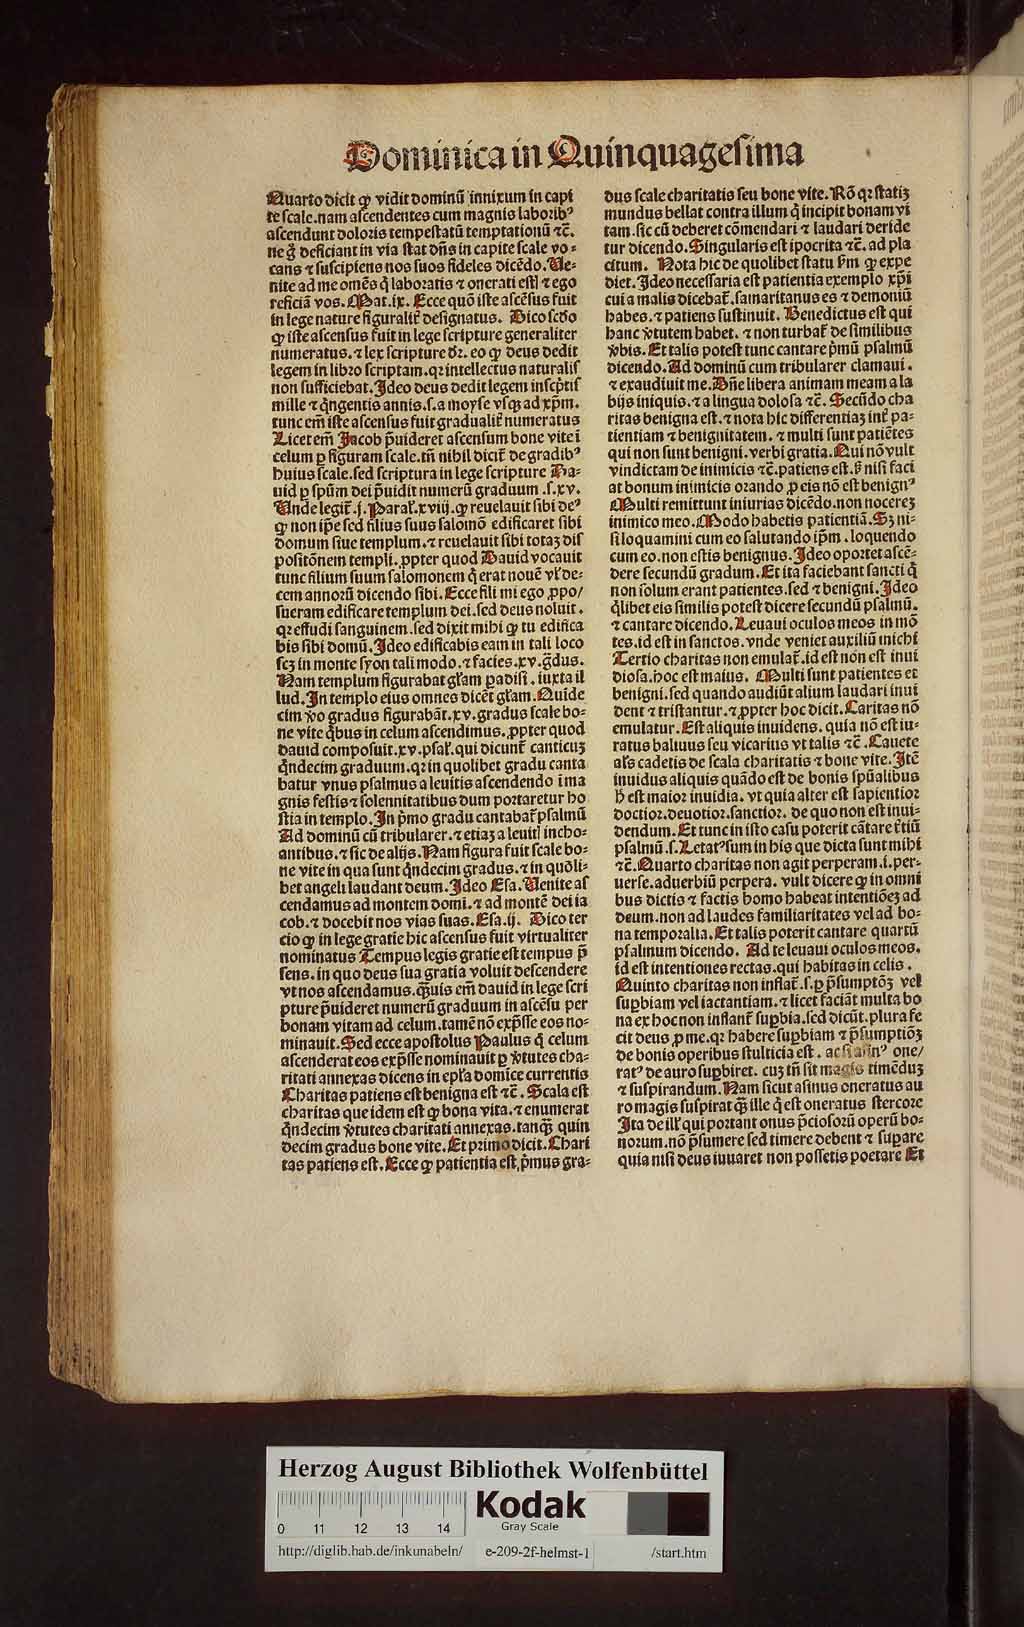 Dominica in Quinquagesima
Quarto dicit ꝙ vidit dominū innixum in capi
te scale. nam ascendentes cum magnis laboribꝰ
ascendunt doloris tempestatū temptationū ⁊c̄.
ne gͦ deficiant in via stat dn̄s in capite scale vo⸗
cans ⁊ suscipiens nos suos fideles dicēdo. Ue⸗
nite ad me omēs q̇ laboratis ⁊ onerati estꝭ ⁊ ego
reficiā vos. Mat. ix. Ecce quō iste ascēsus fuit
in lege nature figuralit̄ designatus. Dico scd̄o
ꝙ iste ascensus fuit in lege scripture generaliter
numeratus. ⁊ lex scripture dr̄. eo ꝙ deus dedit
legem in libro scriptam. qꝛ intellectus naturalis
non sufficiebat. Ideo deus dedit legem inscp̄tis
mille ⁊ q̇ngentis annis. s. a moyse vsqꝫ ad xp̄m.
tunc em̄ iste ascensus fuit gradualit̄ numeratus
Licet em̄ Jacob p̄uideret ascensum bone vite ī
celum ꝑ figuram scale. tn̄ nihil dicit̄ de gradibꝰ
huius scale. sed scriptura in lege scripture Da⸗
uid ꝑ spūm dei p̄uidit numerū graduum .s. xv.
Unde legit̄. j. Paral̄. xviij. ꝙ reuelauit sibi deꝰ
ꝙ non ip̄e sed filius suus salomō edificaret sibi
domum siue templum. ⁊ reuelauit sibi totaꝫ dis
positōnem templi. ꝓpter quod Dauid vocauit
tunc filium suum salomonem q̇ erat nouē vl̄ de⸗
cem annorū dicendo sibi. Ecce fili mi ego ꝓpo/
sueram edificare templum dei. sed deus noluit.
qꝛ effudi sanguinem. sed dixit mihi ꝙ tu edifica
bis sibi domū. Ideo edificabis eam in tali loco
scꝫ in monte syon tali modo. ⁊ facies. xv. g̈dus.
Nam templum figurabat gl̄am ꝑadisi. iuxta il
lud. In templo eius omnes dicēt gl̄am. Quide
cim ꝟo gradus figurabāt. xv. gradus scale bo⸗
ne vite q̇bus in celum ascendimus. ꝓpter quod
dauid composuit. xv. psal̄. qui dicunt̄ canticuꝫ
q̇ndecim graduum. qꝛ in quolibet gradu canta
batur vnus psalmus a leuitis ascendendo ī ma
gnis festis ⁊ solennitatibus dum portaretur ho
stia in templo. In pͥmo gradu cantabat̄ psalmū
Ad dominū cū tribularer. ⁊ etiaꝫ a leuitꝭ incho⸗
antibus. ⁊ sic de alijs. Nam figura fuit scale bo⸗
ne vite in qua sunt q̇ndecim gradus. ⁊ in quōli⸗
bet angeli laudant deum. Ideo Esa. Uenite as
cendamus ad montem domi. ⁊ ad montē dei ia
cob. ⁊ docebit nos vias suas. Esa. ij. Dico ter
cio ꝙ in lege gratie hic ascensus fuit virtualiter
nominatus Tempus legis gratie est tempus p̄
sens. in quo deus sua gratia voluit descendere
vt nos ascendamus. qͣuis em̄ dauid in lege scri
pture p̄uideret numerū graduum in ascēsu per
bonam vitam ad celum. tamē nō exp̄sse eos no⸗
minauit. Sed ecce apostolus Paulus q̇ celum
ascenderat eos exp̄sse nominauit ꝑ ꝟtutes cha⸗
ritati annexas dicens in epl̄a domīce currentis
Charitas patiens est benigna est ⁊c̄. Scala est
charitas que idem est ꝙ bona vita. ⁊ enumerat
q̇ndecim ꝟtutes charitati annexas. tanqͣꝫ quin
decim gradus bone vite. Et primo dicit. Chari
tas patiens est. Ecce ꝙ patientia est pͥmus gra⸗
dus scale charitatis seu bone vite. Rō qꝛ statiꝫ
mundus bellat contra illum q̇ incipit bonam vi
tam. sic cū deberet cōmendari ⁊ laudari deride
tur dicendo. Singularis est ipocrita ⁊c̄. ad pla
citum. Nota hic de quolibet statu ẜm ꝙ expe
diet. Ideo necessaria est patientia exemplo xp̄i
cui a malis dicebat̄. samaritanus es ⁊ demoniū
habes. ⁊ patiens sustinuit. Benedictus est qui
hanc ꝟtutem habet. ⁊ non turbat̄ de similibus
ꝟbis. Et talis potest tunc cantare pͥmū psalmū
dicendo. Ad dominū cum tribularer clamaui.
⁊ exaudiuit me. Dn̄e libera animam meam a la
bijs iniquis. ⁊ a lingua dolosa ⁊c̄. Secūdo cha
ritas benigna est. ⁊ nota hic differentiaꝫ int̄ pa⸗
tientiam ⁊ benignitatem. ⁊ multi sunt patiētes
qui non sunt benigni. verbi gratia. Qui nō vult
vindictam de inimicis ⁊c̄. patiens est. ẜ nisi faci
at bonum inimicis orando ꝓ eis nō est benignꝰ
Multi remittunt iniurias dicēdo. non nocereꝫ
inimico meo. Modo habetis patientiā. Sꝫ ni⸗
si loquamini cum eo salutando ip̄m. loquendo
cum eo. non estis benignus. Ideo oportet ascē⸗
dere secundū gradum. Et ita faciebant sancti q̇
non solum erant patientes. sed ⁊ benigni. Ideo
q̇libet eis similis potest dicere secundū psalmū.
⁊ cantare dicendo. Leuaui oculos meos in mō
tes. id est in sanctos. vnde veniet auxiliū michi
Tertio charitas non emulat̄. id est non est inui
diosa. hoc est maius. Multi sunt patientes et
benigni. sed quando audiūt alium laudari inui
dent ⁊ tristantur. ⁊ ꝓpter hoc dicit. Caritas nō
emulatur. Est aliquis inuidens. quia nō est iu⸗
ratus baliuus seu vicarius vt talis ⁊c̄. Cauete
al̄s cadetis de scala charitatis ⁊ bone vite. Itē
inuidus aliquis quādo est de bonis spūalibus
ħ est maior inuidia. vt quia alter est sapientior
doctior. deuotior. sanctior. de quo non est inui⸗
dendum. Et tunc in isto casu poterit cātare t̄tiū
psalmū. s. Letatꝰ sum in his que dicta sunt mihi
⁊c̄. Quarto charitas non agit perperam. i. per⸗
uerse. aduerbiū perpera. vult dicere ꝙ in omni
bus dictis ⁊ factis homo habeat intentiōeꝫ ad
deum. non ad laudes familiaritates vel ad bo⸗
na temporalia. Et talis poterit cantare quartū
psalmum dicendo. Ad te leuaui oculos meos.
id est intentiones rectas. qui habitas in celis.
Quinto charitas non inflat̄. s. ꝑ p̄sumptōꝫ vel
suꝑbiam vel iactantiam. ⁊ licet faciāt multa bo
na ex hoc non inflant̄ suꝑbia. sed dicūt. plura fe
cit deus ꝓ me. qꝛ habere suꝑbiam ⁊ p̄sumptiōꝫ
de bonis operibus stulticia est. ac si asinꝰ one/
ratꝰ de auro suꝑbiret. cuꝫ tn̄ sit magis timēduꝫ
⁊ suspirandum. Nam sicut asinus oneratus au
ro magis suspirat qͣꝫ ille q̇ est oneratus stercore
Ita de illꝭ qui portant onus p̄ciosorū operū bo⸗
norum. nō p̄sumere sed timere debent ⁊ suꝑare
quia nisi deus iuuaret non possetis poetare Et
Herzog August Bibliothek Wolfenbüttel
0 11 12 13 14
Kodak
Gray Scale
http://diglib.hab.de/inkunabeln/ e-209-2f-helmst-1 /start.htm